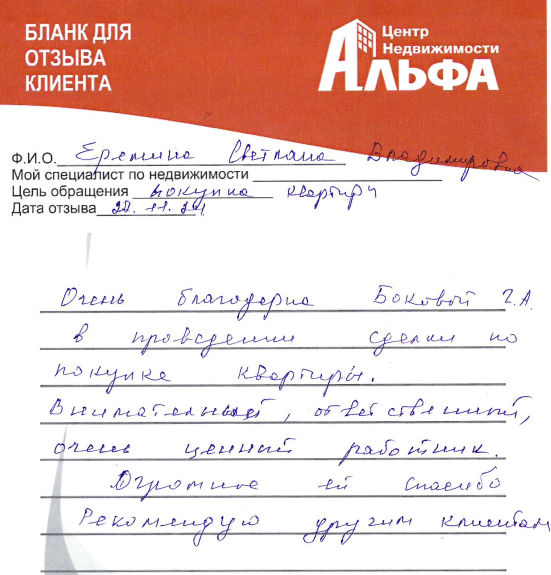 БЛАНК ДЛЯ
ОТЗЫВА
КЛИЕНТА
Центр
Недвижимости
АЛЬФА
Ф.И.О. Еремина Светлана Владимировна
Мой специалист по недвижимости
Цель обращения покупка квартиры
Дата отзыва 11. 24
Очень благодарна Боковой Г.А.
в проведении сделки по
покупке квартиры.
Внимательный, ответственный,
очень ценный работник.
Огромное ей спасибо
Рекомендую другим клиентам